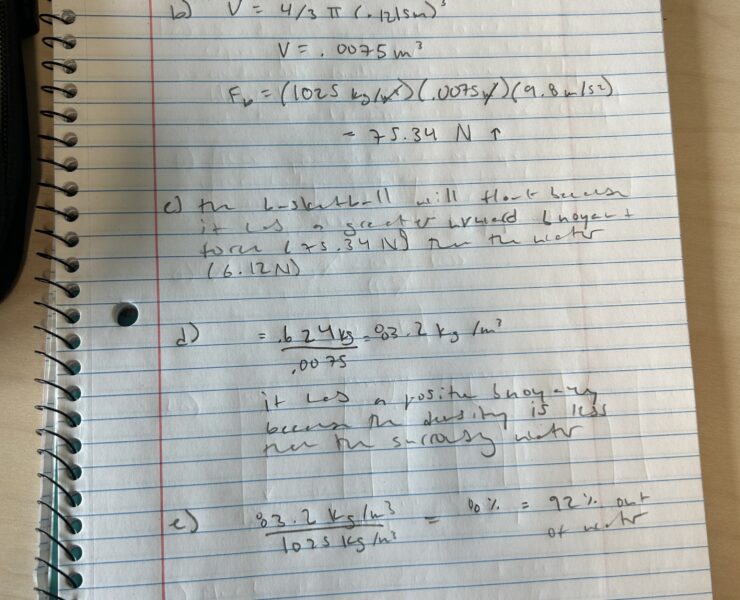 b) V = 4/3 π (.1215m)³
V = .0075 m³
F_b = (1025 kg/m³)(.0075m³)(9.8 m/s²)
= 75.34 N ↑
c) the basketball will float because
it has a greater upward buoyant
force (75.34 N) than the water
(6.12N)
d) = .624kg = 83.2 kg/m³
.0075
it has a positive buoyancy
because the density is less
than the water
e) 83.2 kg/m³ = % = 92% out
1025 kg/m³ of water